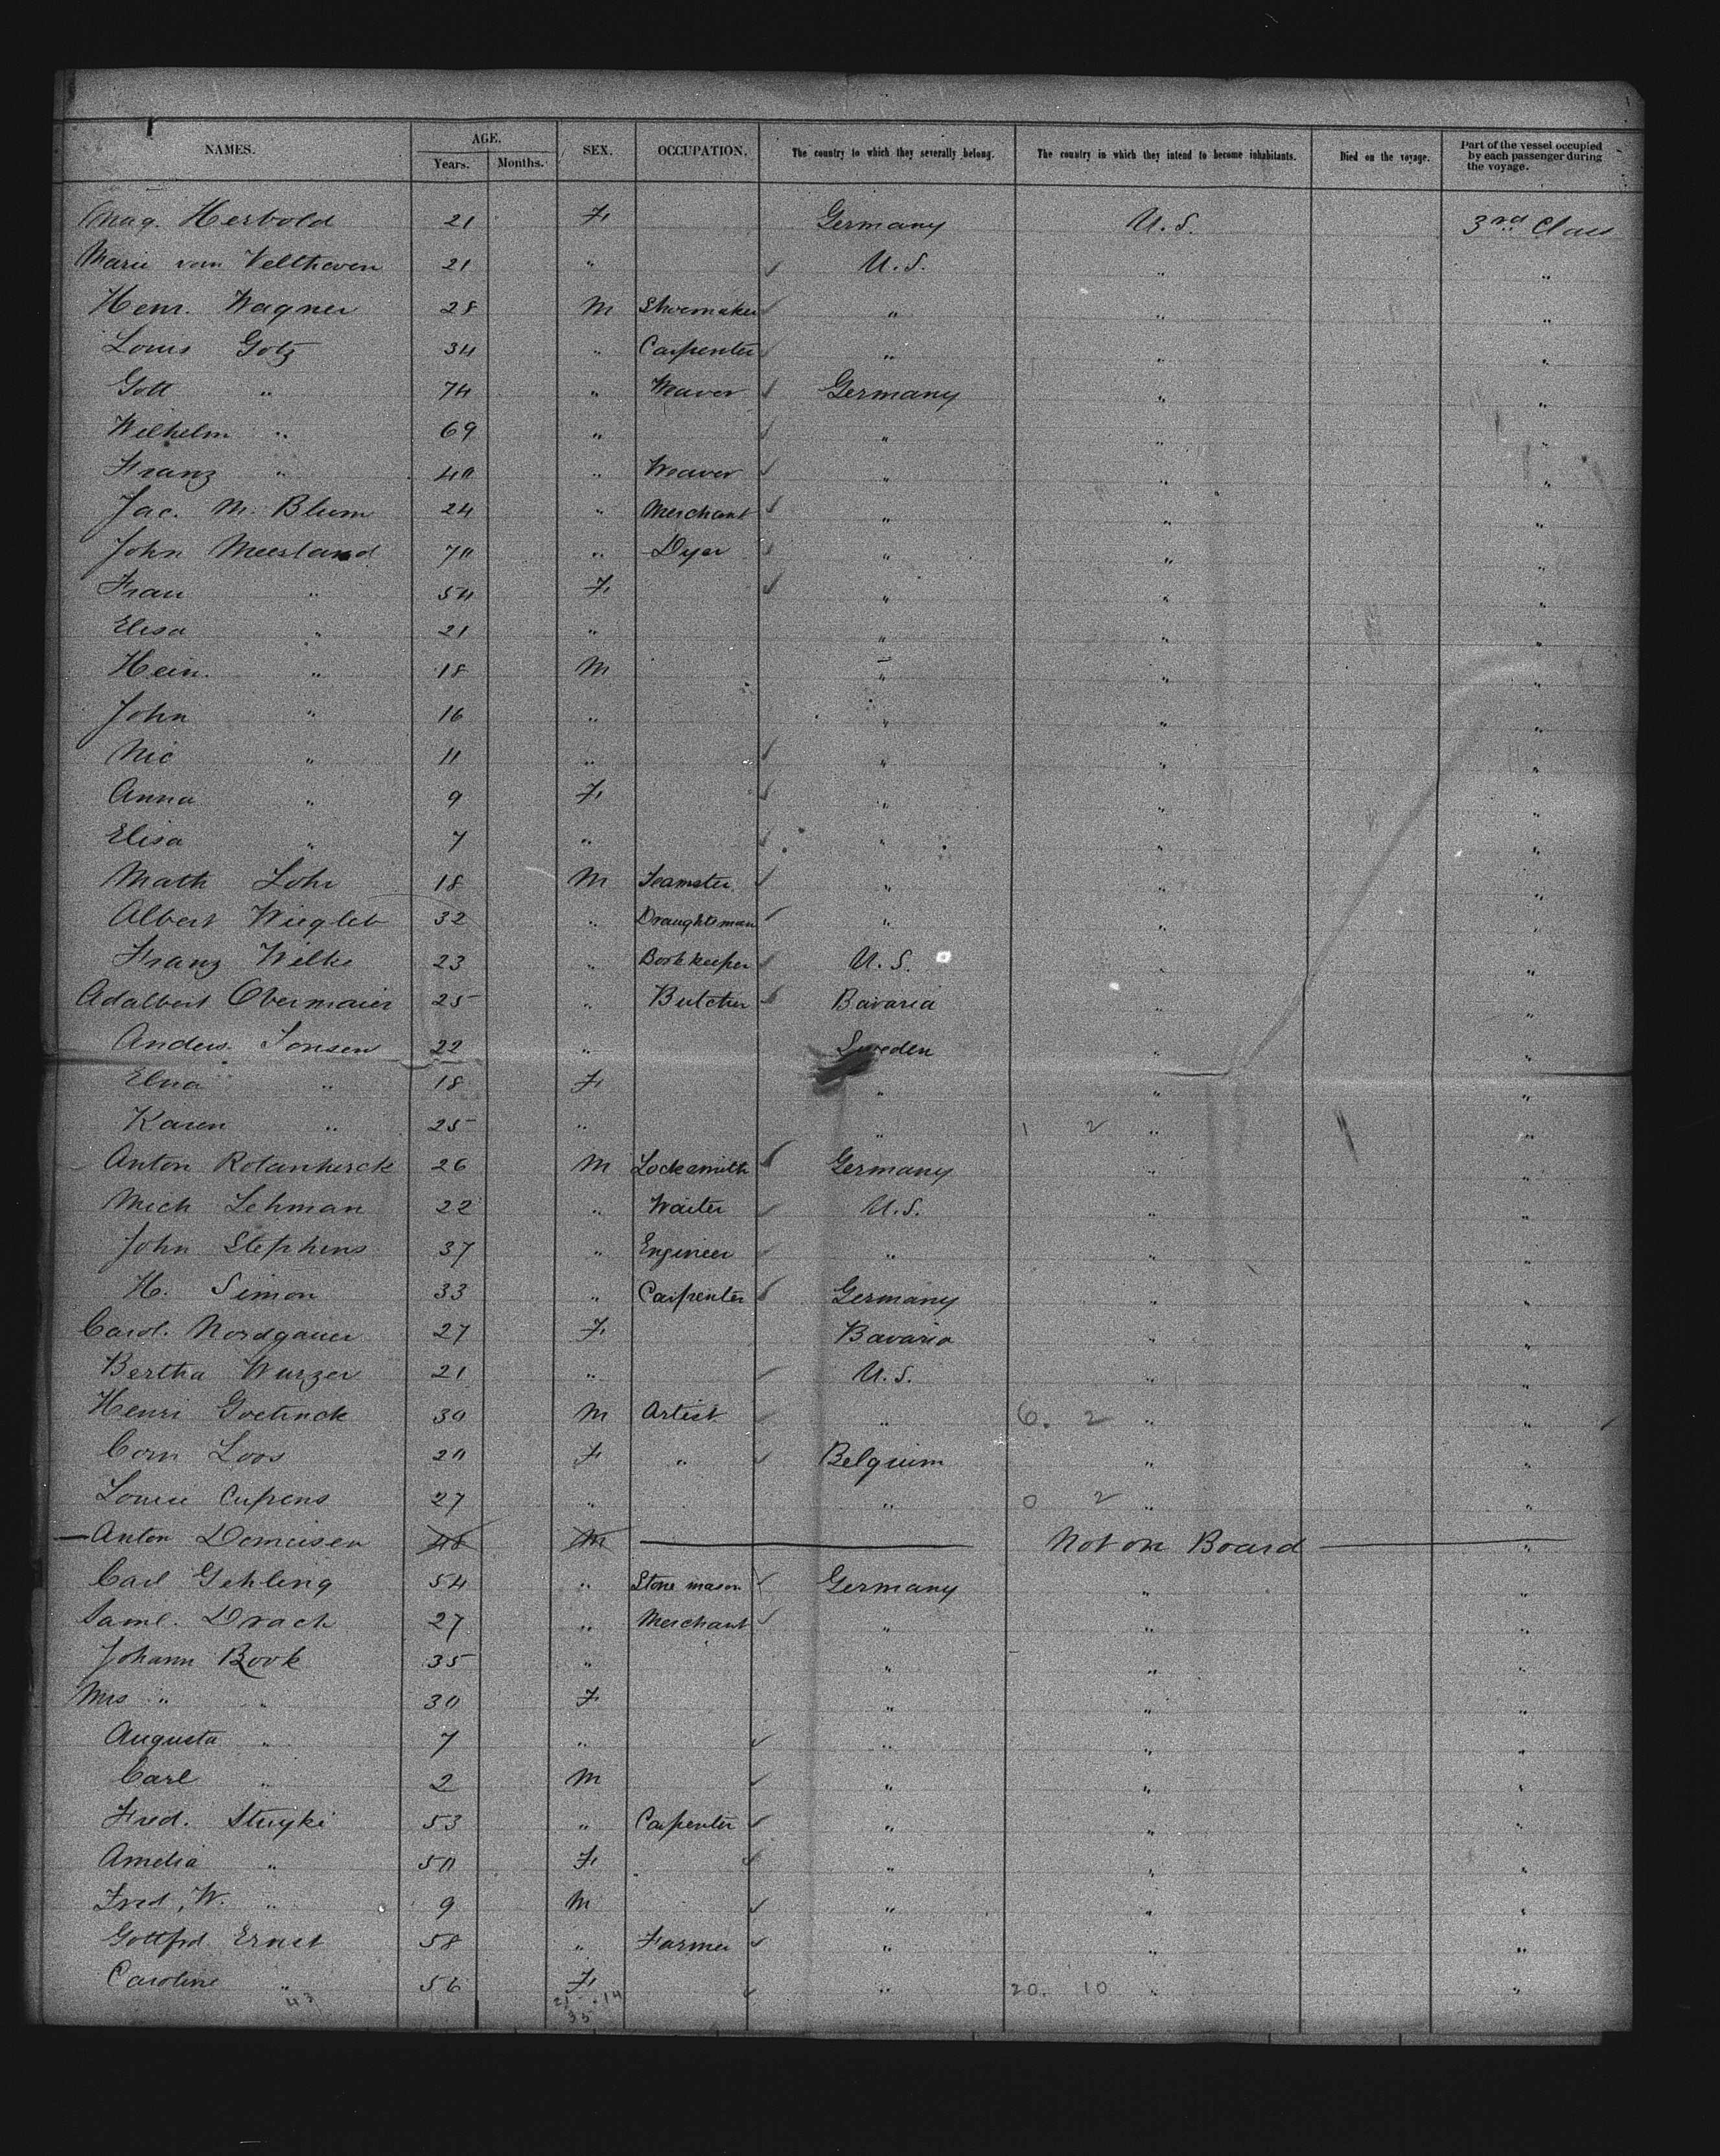 NAMES. AGE. Years. Months. SEX. OCCUPATION. The country to which they severally belong. The country in which they intend to become inhabitants. Died on the voyage. Part of the vessel occupied by each passenger during the voyage.
Mag. Herbold 21 F Germany U.S. 3rd Class
Marie van Velthoven 21 " U.S. " "
Henr. Wagner 28 M Shoemaker " " "
Louis Gotz 34 " Carpenter " " "
Gott " 74 " Weaver Germany " "
Wilhelm " 69 " " " "
Franz " 40 " Weaver " " "
Jac. M. Blum 24 " Merchant " " "
John Meesland 70 " Dyer " " "
Frau " 54 F " " "
Elisa " 21 " " " "
Hein. " 18 M " " "
John " 16 " " " "
Nic " 11 " " " "
Anna " 9 F " " "
Elisa " 7 " " " "
Math Lohr 18 M Teamster " " "
Albert Wiegleb 32 " Draughtsman " " "
Franz Wilke 23 " Bookkeeper U.S. " "
Adalbert Obermaier 25 " Butcher Bavaria " "
Anders Jonsen 22 " Sweden " "
Elna " 18 F " " "
Karen " 25 " " 1 2 " "
Anton 26 M Locksmith Germany " "
Mich Lehman 22 " Waiter U.S. " "
John Stephens 37 " Engineer " " "
H. Simon 33 " Carpenter Germany " "
Carol. Nordgauer 27 F Bavaria " "
Bertha Wurzer 21 " U.S. " "
Henri Goetinck 30 M Artist " 6. 2 " "
Corn Loos 20 F " Belgium " "
Louise Cupens 27 " " 0 2 " "
Anton Domeisen 48 M Not on Board "
Carl Gehling 54 " Stone mason Germany " "
Saml. Drach 27 " Merchant " " "
Johann Book 35 " " " "
Mrs " " 30 F " " "
Augusta " 7 " " " "
Carl " 2 M " " "
Fred. Stuyki 53 " Carpenter " " "
Amelia " 50 F " " "
Fred. W. " 9 M " " "
Gottfrd Ernst 58 " Farmer " " "
Caroline " 56 F " 20. 10 " "
43 21 14
35